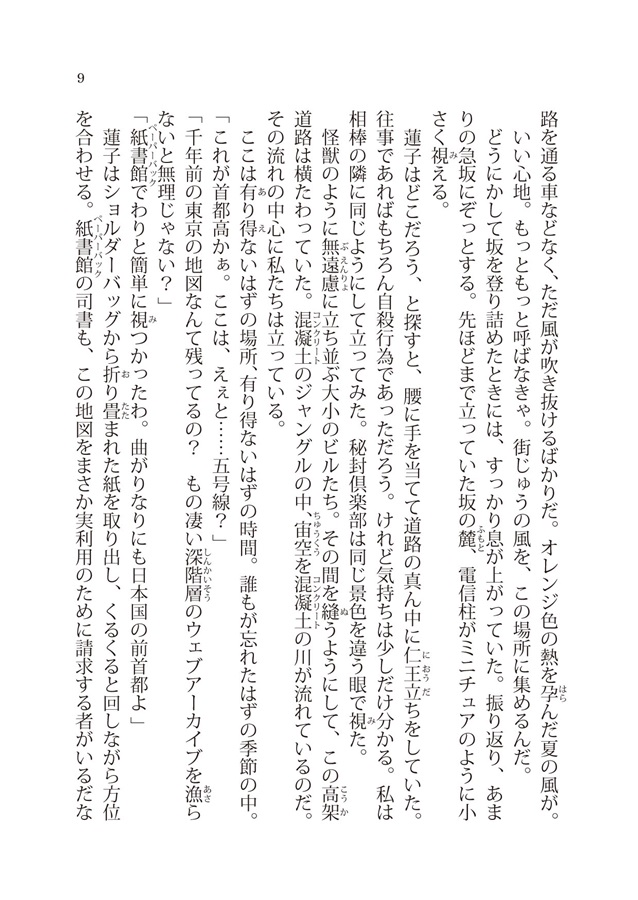 9
路を通る車などなく、ただ風が吹き抜けるばかりだ。オレンジ色の熱を孕んだ夏の風が。
いい心地。もっともっと呼ばなきゃ。街じゅうの風を、この場所に集めるんだ。
どうにかして坂を登り詰めたときには、すっかり息が上がっていた。振り返り、あま
りの急坂にぞっとする。先ほどまで立っていた坂の麓、電信柱がミニチュアのように小
さく視える。
蓮子はどこだろう、と探すと、腰に手を当てて道路の真ん中に仁王立ちをしていた。
往事であればもちろん自殺行為であっただろう。けれど気持ちは少しだけ分かる。私は
相棒の隣に同じようにして立ってみた。秘封倶楽部は同じ景色を違う眼で視た。
怪獣のように無遠慮に立ち並ぶ大小のビルたち。その間を縫うようにして、この高架
道路は横たわっていた。混凝土のジャングルの中、宙空を混凝土の川が流れているのだ。
その流れの中心に私たちは立っている。
ここは有り得ないはずの場所、有り得ないはずの時間。誰もが忘れたはずの季節の中。
「これが首都高かぁ。ここは、えぇと……五号線？」
「千年前の東京の地図なんて残ってるの？　もの凄い深階層のウェブアーカイブを漁ら
ないと無理じゃない？」
「紙書館でわりと簡単に視つかったわ。曲がりなりにも日本国の前首都よ」
蓮子はショルダーバッグから折り畳まれた紙を取り出し、くるくると回しながら方位
を合わせる。紙書館の司書も、この地図をまさか実利用のために請求する者がいるだな